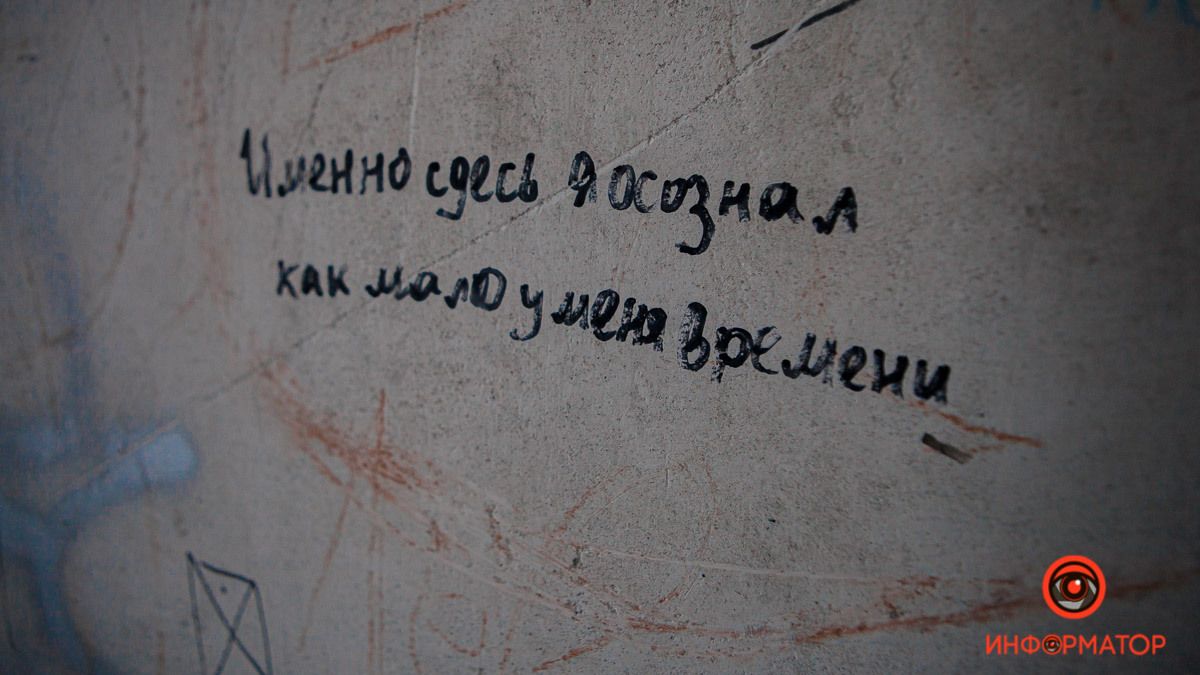 Именно сдесь я осознал
как мало у меня времени
ИНФОРМАТОР